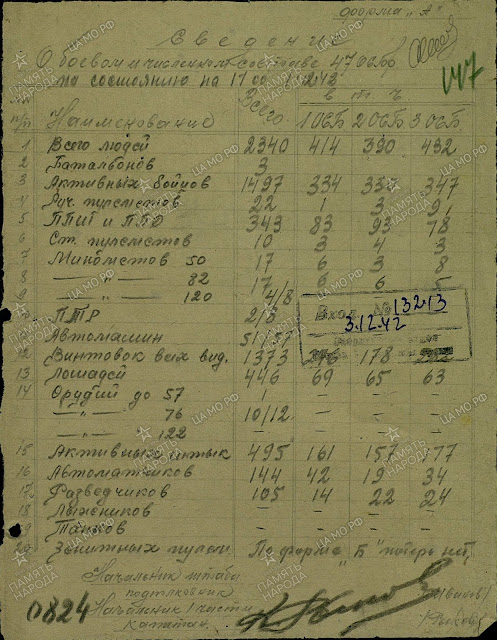 Форма „А"
Сведение
О боевом и численном составе 47 осбр
по состоянию на 17.00 2.12
№ п/п Наименование Всего в т. ч.
1 ОСБ 2 ОСБ 3 ОСБ
1 Всего людей 2340 414 390 432
2 Батальонов 3
3 Активных бойцов 1497 334 347
4 Руч. пулеметов 22 1 3 9
5 ППШ и ППД 343 83 93 78
6 Ст. пулеметов 10 3 4 3
7 Минометов 50 17 6 3 8
8 —"— 82 17 6 6 5
9 —"— 120 4/8
ПТР 2/8
Автомашин
12 Винтовок всех вид. 1373 178
13 Лошадей 446 69 65 63
14 Орудий до 57 1 – – –
—"— 76 10/12 – – –
—"— 122 – – – –
15 Активных штык 495 161 157 177
16 Автоматчиков 144 42 19 34
17 Разведчиков 105 14 22 24
18 Лыжников – – – –
19 Танков – – – –
20 Зенитных пулем. По форме „Б" потерь нет.
Вход. № 13213
3.12.42
447
Начальник штаба
подполковник
Начальник 1 части
капитан
/Иванов/
0824
ПАМЯТЬ НАРОДА
ЦАМО.РФ